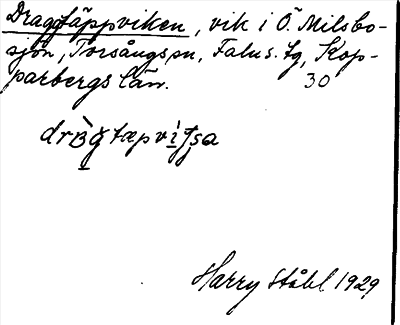 Draggtäppviken, vik i Ö. Milsbo-
sjön, Torsångs sn, Falu s. tg, Kop-
parbergs län. 30
Harry Ståhl 1929